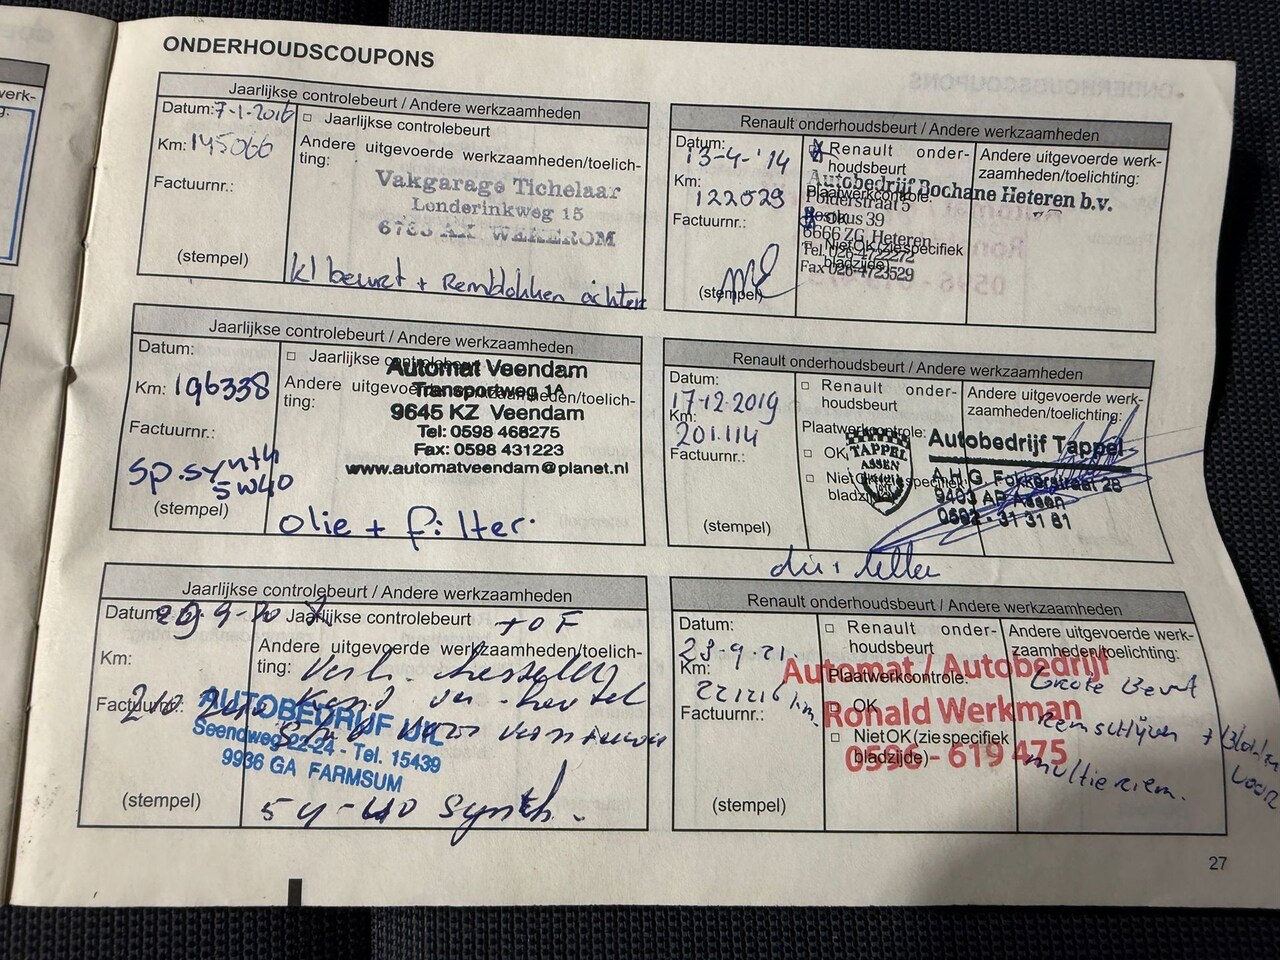 ONDERHOUDSCOUPONS
Jaarlijkse controlebeurt / Andere werkzaamheden
Datum: 7-1-2016
□ Jaarlijkse controlebeurt
Km: 145066
Andere uitgevoerde werkzaamheden/toelich-
ting:
Factuurnr.:
Vakgarage Tichelaar
Lunderinkweg 15
WEKEROM
(stempel)
kl beurt + Remblokken achter
Renault onderhoudsbeurt / Andere werkzaamheden
Datum:
13-4-'14
Km:
122029
Factuurnr.:
(stempel)
Renault onder-
houdsbeurt
Plaatwerkcontrole:
OK
□ Niet OK (zie specifiek
bladzijde)
Andere uitgevoerde werk-
zaamheden/toelichting:
Autobedrijf Bochane Heteren b.v.
Polderstraat 5
Postbus 39
6666 ZG Heteren
Tel. 026-4722272
Fax 026-4723529
Jaarlijkse controlebeurt / Andere werkzaamheden
Datum:
□ Jaarlijkse controlebeurt
Km: 196338
Andere uitgevoerde werkzaamheden/toelich-
ting:
Factuurnr.:
Automat Veendam
Transportweg 1A
9645 KZ Veendam
Tel: 0598 468275
Fax: 0598 431223
www.automatveendam@planet.nl
sp. synth
5w40
(stempel)
olie + filter.
Renault onderhoudsbeurt / Andere werkzaamheden
Datum:
17-12-2019
Km:
201.114
Factuurnr.:
(stempel)
□ Renault onder-
houdsbeurt
Plaatwerkcontrole:
□ OK
□ Niet OK (zie specifiek
bladzijde)
Andere uitgevoerde werk-
zaamheden/toelichting:
TAPPEL
ASSEN
Autobedrijf Tappel
A.H.G. Fokkerstraat 28
9403 AP Assen
0592 - 31 31 81
Jaarlijkse controlebeurt / Andere werkzaamheden
Datum:
Jaarlijkse controlebeurt
+ O F
Km:
Andere uitgevoerde werkzaamheden/toelich-
ting:
Factuurnr.:
AUTOBEDRIJF UIL
Seendweg 22-24 - Tel. 15439
9936 GA FARMSUM
(stempel)
synth.
Renault onderhoudsbeurt / Andere werkzaamheden
Datum:
23-9-21
Km:
221216 km.
Factuurnr.:
(stempel)
□ Renault onder-
houdsbeurt
Plaatwerkcontrole:
□ OK
□ Niet OK (zie specifiek
bladzijde)
Andere uitgevoerde werk-
zaamheden/toelichting:
Automat / Autobedrijf
Ronald Werkman
0596 - 619 475
Grote Beurt
Remschijven + Blokken
voor
multieriem.
27